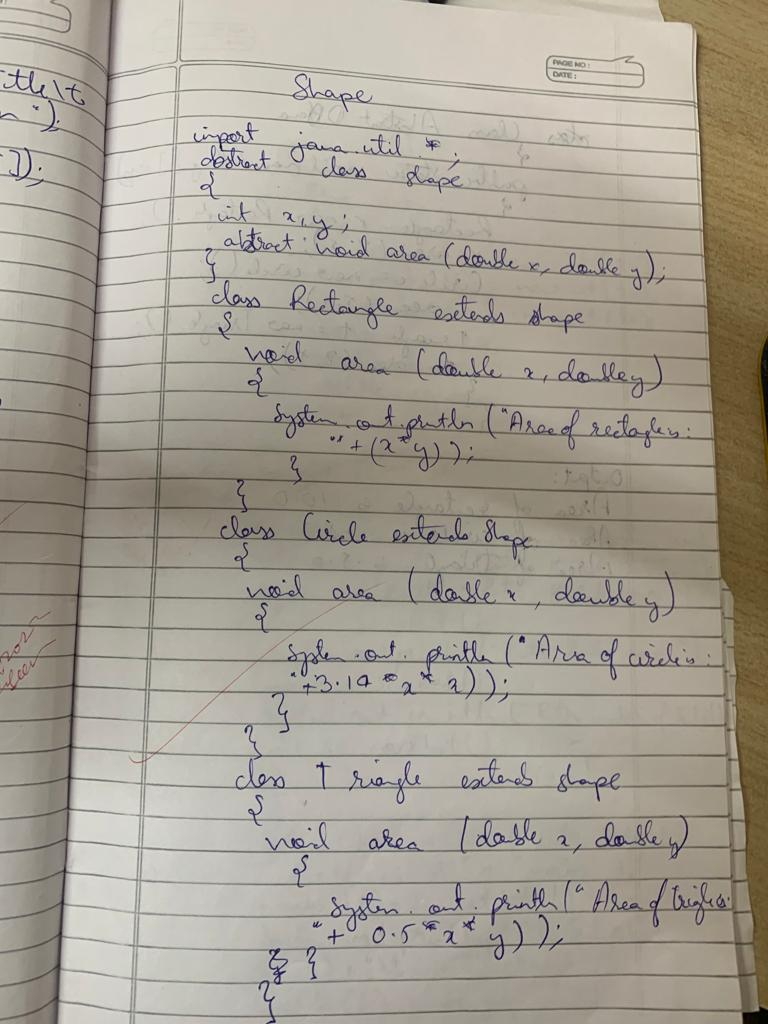 PAGE NO :
DATE :
Shape
import java.util *;
abstract class shape
{
int x,y;
abtract void area (double x, double y);
}
class Rectangle extends shape
{
void area (double x, double y)
{
System.out.println ("Area of rectagle is:
"+(x*y));
}
}
class Circle extends Shape
{
void area (double x, double y)
{
System.out.println ("Area of circle is:
"+3.14 * x * x));
}
}
class Triangle extends shape
{
void area (double x, double y)
{
System.out.println ("Area of
"+ 0.5 * x * y));
} }
}